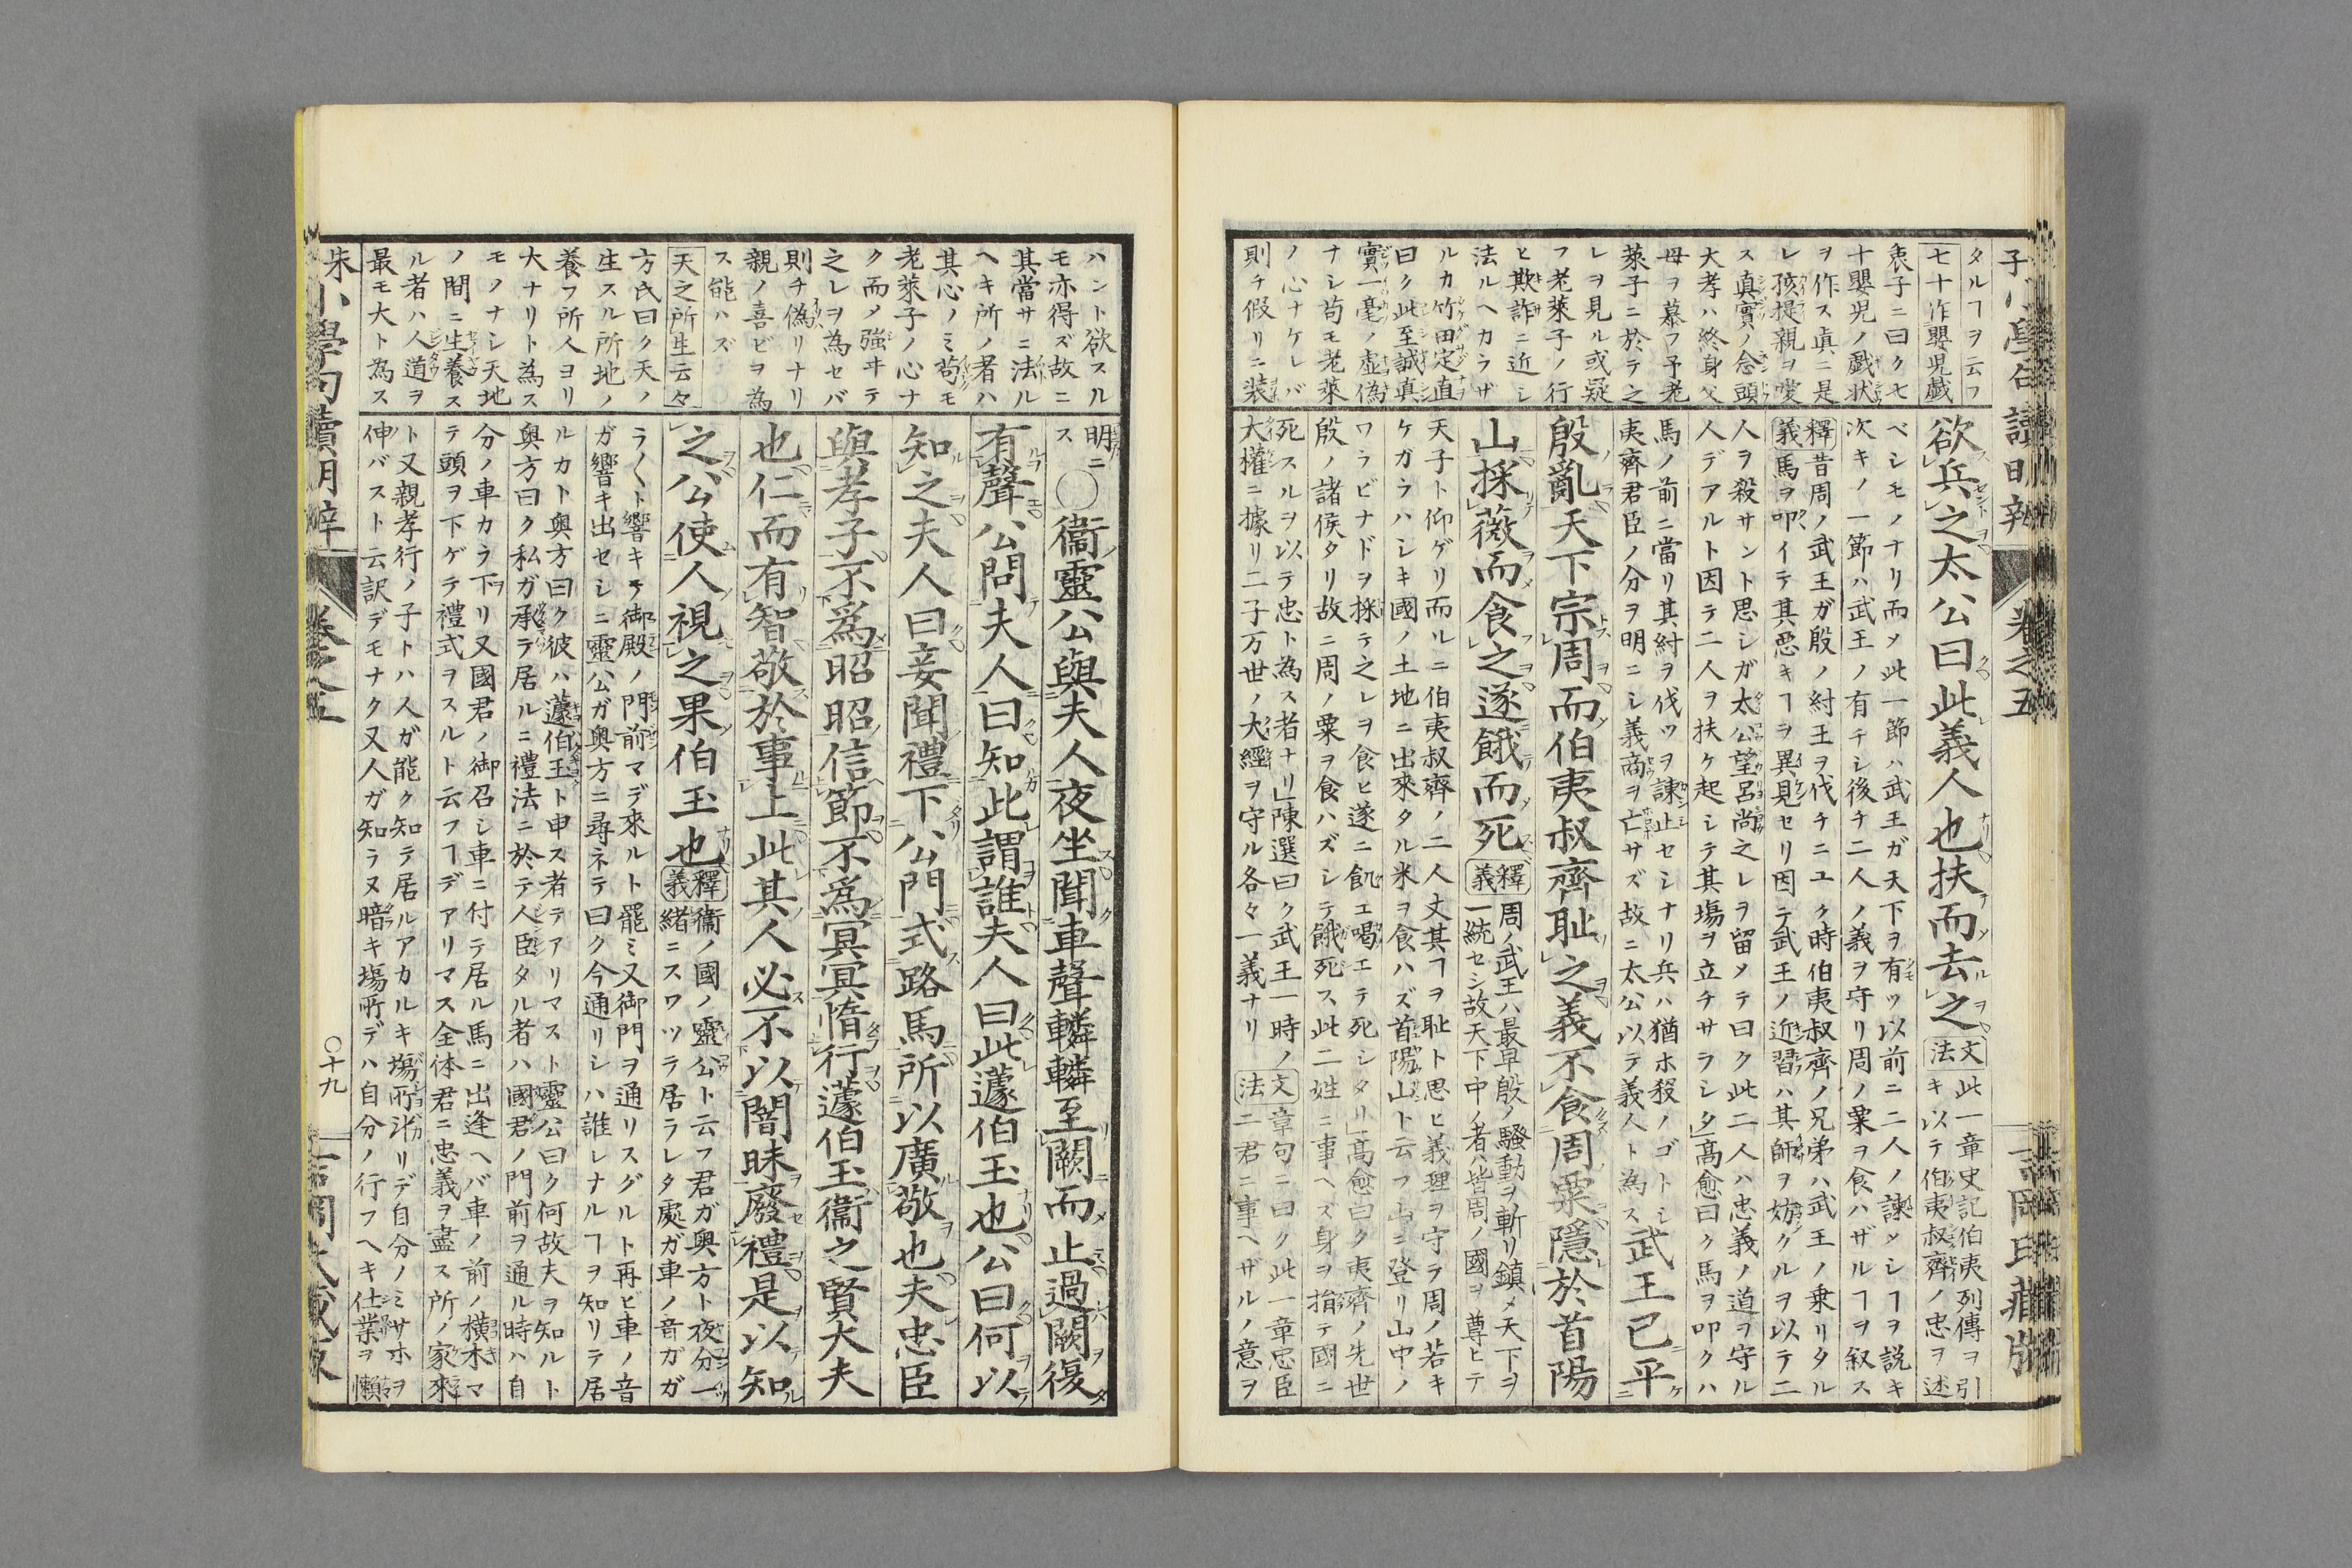 タルヿヲ云フ
七十作嬰児戯
表子ニ曰ク七
十嬰児ノ戯状
ヲ作ス真ニ是
レ孩提親ヲ愛
ス真實ノ念頭
大孝ハ終身父
母ヲ慕フ予老
萊子ニ於テ之
レヲ見ル或疑
フ老萊子ノ行
ヒ欺詐ニ近シ
法ルヘカラザ
ルカ竹田定直
曰ク此至誠真
實一毫ノ虚偽
ナシ苟モ老萊
ノ心ナケレバ
則チ假リニ装
欲兵之太公曰此義人也扶而去之
文法
此一章史記伯夷列傳ヲ引
キ以テ伯夷叔齊ノ忠ヲ述
ベシモノナリ而メ此一節ハ武王ガ天下ヲ有ツ以前ニ二人ノ諫メシヿヲ説キ
次キノ一節ハ武王ノ有チシ後チ二人ノ義ヲ守リ周ノ粟ヲ食ハザルヿヲ叙ス
釋義
昔周ノ武王ガ殷ノ紂王ヲ伐チニユク時伯夷叔齊ノ兄弟ハ武王ノ乗リタル
馬ヲ叩イテ其悪キヿヲ異見セリ因テ武王ノ近習ハ其師ヲ妨クルヲ以テ二
人ヲ殺サント思シガ太公望呂尚之レヲ留メテ曰ク此二人ハ忠義ノ道ヲ守ル
人デアルト因テ二人ヲ扶ケ起シテ其塲ヲ立チサラシタ」髙愈曰ク馬ヲ叩クハ
馬ノ前ニ當リ其紂ヲ伐ツヲ諫止セシナリ兵ハ猶ホ殺ノゴトシ
夷齊君臣ノ分ヲ明ニシ義商ヲ亡サズ故ニ太公以テ義人ト為ス
武王已平
殷亂天下宗周而伯夷叔齊耻之義不食周粟隱於首陽
山採薇而食之遂餓而死
釋義
周ノ武王ハ最早殷ノ騒動ヲ斬リ鎮メ天下ヲ
一統セシ故天下中ノ者ハ皆周ノ國ヲ尊ヒテ
天子ト仰ゲリ而ルニ伯夷叔齊ノ二人丈其ヿヲ耻ト思ヒ義理ヲ守ラ周ノ若キ
ケガラハシキ國ノ土地ニ出來タル米ヲ食ハズ首陽山ト云フ山ニ登リ山中ノ
ワラビナドヲ採テ之レヲ食ヒ遂ニ飢エ喝エテ死シタリ」髙愈曰ク夷齊ノ先世
殷ノ諸侯タリ故ニ周ノ粟ヲ食ハズシテ餓死ス此二姓ニ事ヘズ身ヲ指テ國ニ
死スルヲ以テ忠ト為ス者ナリ」陳選曰ク武王一時ノ
大權ニ據リ二子万世ノ大經ヲ守ル各々一義ナリ
文法
章句ニ曰ク此一章忠臣
二君ニ事ヘザルノ意ヲ
巻之五
ハント欲スル
モ亦得ズ故ニ
其當サニ法ル
ヘキ所ノ者ハ
其心ノミ苟モ
老萊子ノ心ナ
ク而メ強ヰテ
之レヲ為セバ
則チ偽リナリ
親ノ喜ビヲ為
ス能ハズ
天之所生云々
方氏曰ク天ノ
生スル所地ノ
養フ所人ヨリ
大ナリト為ス
モノナシ天地
ノ間ニ生養ス
ル者ハ人道ヲ
最モ大ト為ス
明ニ
ス
○衞靈公與夫人夜坐聞車聲轔轔至闕而止過闕復
有聲公問夫人曰知此謂誰夫人曰此蘧伯玉也公曰何以
知之夫人曰妾聞禮下公門式路馬所以廣敬也夫忠臣
與孝子不爲昭昭信節不爲冥冥惰行蘧伯玉衞之賢大夫
也仁而有智敬於事上此其人必不以闇昧廢禮是以知
之公使人視之果伯玉也
釋義
衞ノ國ノ靈公ト云フ君ガ奥方ト夜分一
緒ニスワツラ居ラレタ處ガ車ノ音ガガ
ラ〳〵ト響キテ御殿ノ門前マデ來ルト罷ミ又御門ヲ通リスグルト再ビ車ノ音
ガ響キ出セシニ靈公ガ奥方ニ尋ネテ曰ク今通リシハ誰レナルヿヲ知リテ居
ルカト奥方曰ク彼ハ蘧伯玉ト申ス者テアリマスト靈公曰ク何故夫ヲ知ルト
奥方曰ク私ガ承ラ居ルニ禮法ニ於テ人臣タル者ハ國君ノ門前ヲ通ル時ハ自
分ノ車カラ下リ又國君ノ御召シ車ニ付テ居ル馬ニ出逢ヘバ車ノ前ノ横木マ
テ頭ヲ下ゲテ禮式ヲスルト云フヿデアリマス全体君ニ忠義ヲ盡ス所ノ家來
ト又親孝行ノ子トハ人ガ能ク知テ居ルアカルキ塲所斗リデ自分ノミサホヲ
伸バスト云訳デモナク又人ガ知ラヌ暗キ場所デハ自分ノ行フヘキ仕業ヲ懶
朱小學句讀明辨
巻之五
○十九